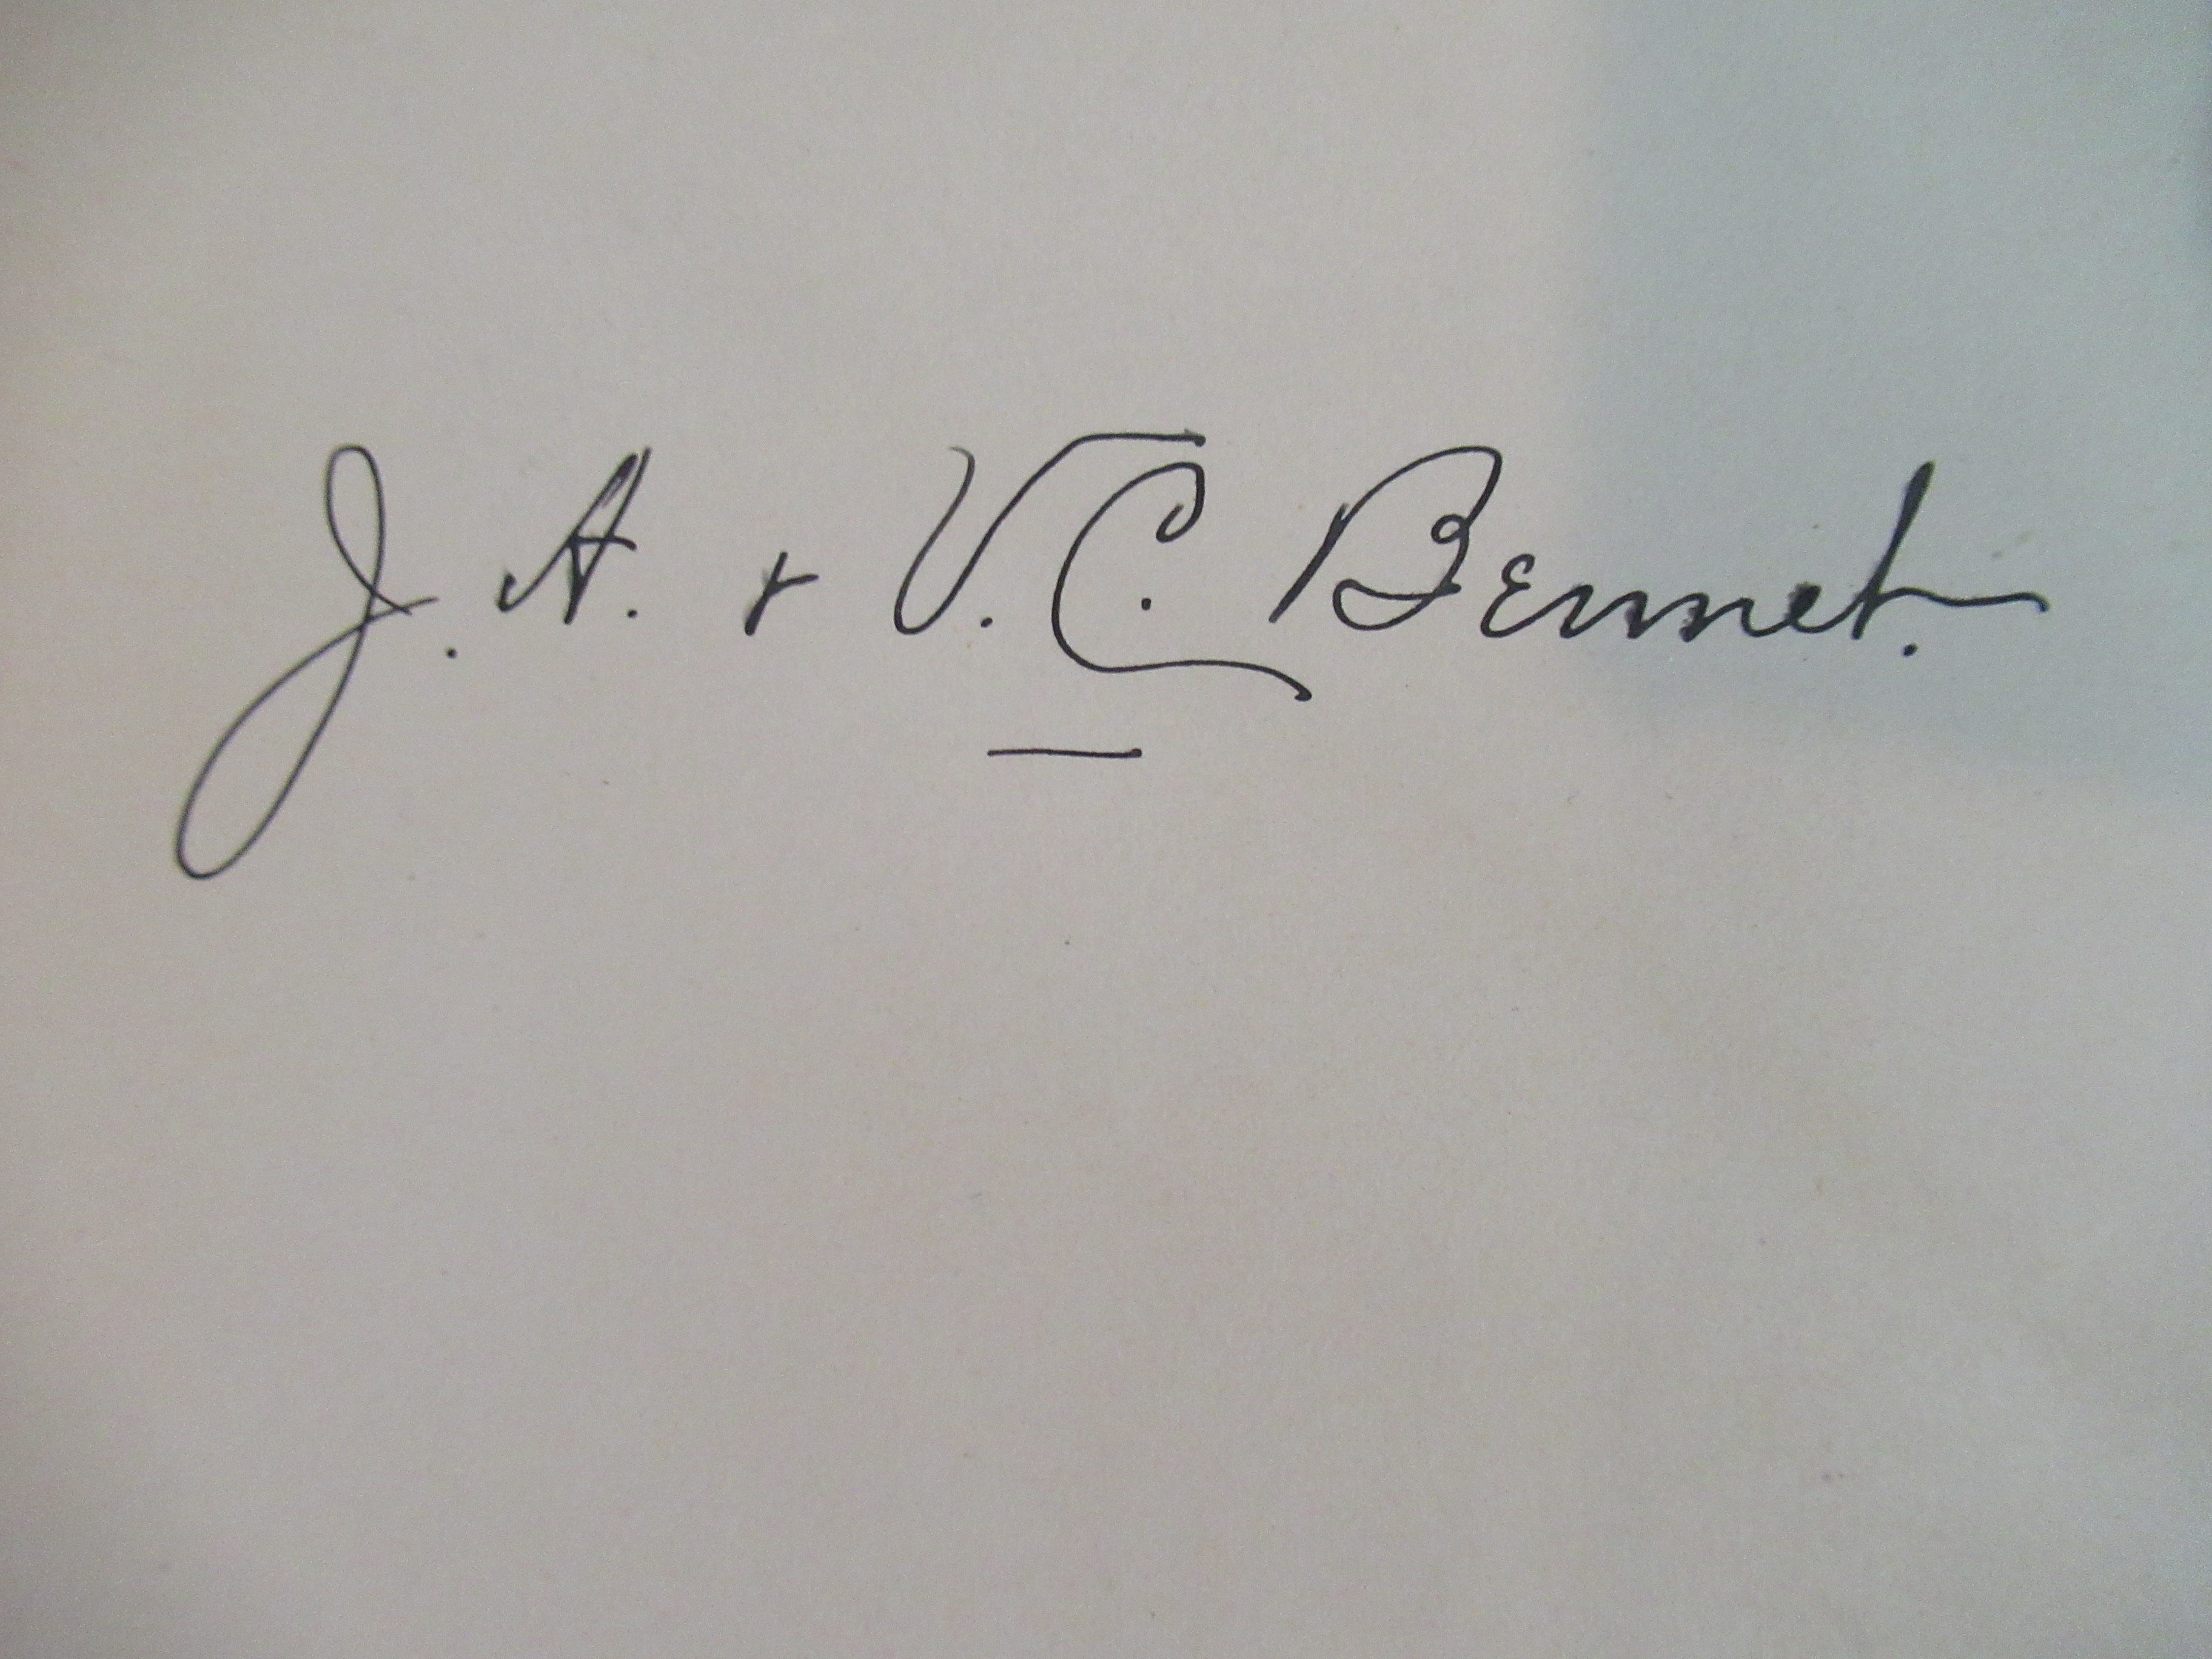 J. A. + V. C. Bennet.